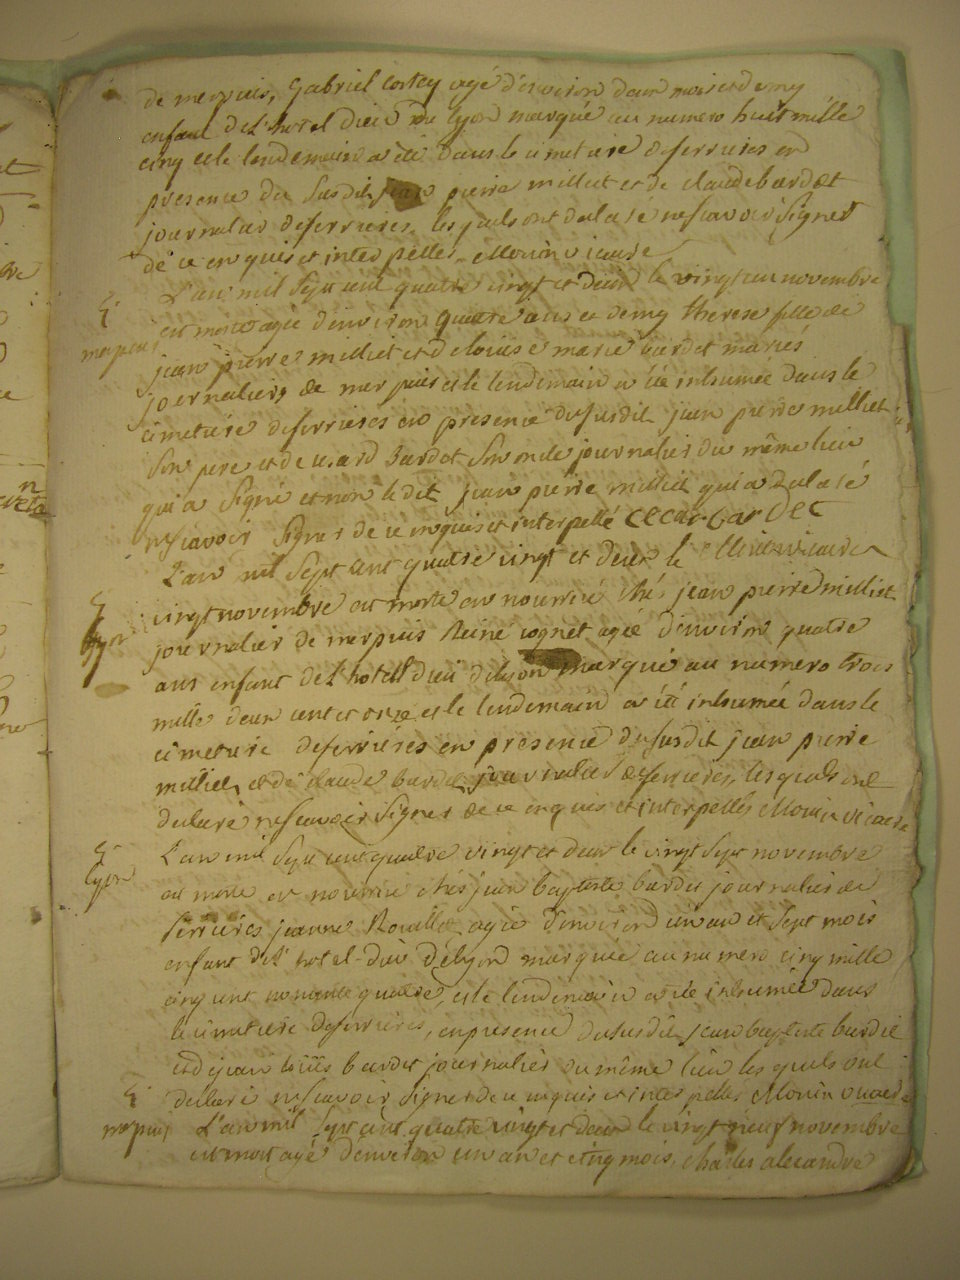 de merpuis, Gabriel agé d'environ deux mois et demy
enfant de L'hotel dieu de lyon marqué au numero huit mille
cinq et le lendemain a été dans le cimetiere deserrieres en
presence du susdit jean pierre milliet et de claude bardet
journalier deserrieres, les quels ont declaré ne scavoir signer
de ce enquis et interpellés Mouin vicaire
L'an mil sept cent quatre vingt et deux le vingt un novembre
merpuis
est morte agée d'environ quatre ans et demy therese fille de
jean pierre milliet et de louise marie bardet mariés
journaliers de merpuis et le lendemain a été inhumée dans le
cimetiere deserrieres en presence du susdit jean pierre milliet
son pere et de bardet son oncle journalier du même lieu
qui a signé et non le dit jean pierre milliet qui a declaré
ne scavoir signer de ce enquis et interpellé bardet
Mouin vicaire
L'an mil sept cent quatre vingt et deux le
lyon
vingt novembre est morte en nourrice chés jean pierre milliet
journalier de merpuis Reine cognet agée d'environ quatre
ans enfant de L'hotel dieu de lyon marqué au numero trois
mille deux cent et onze et le lendemain a été inhumée dans le
cimetiere deserrieres en presence du susdit jean pierre
milliet et de claude bardet journalier deserrieres, les quels ont
declaré ne scavoir signer de ce enquis et interpellés Mouin vicaire
L'an mil sept cent quatre vingt et deux le vingt sept novembre
lyon
est morte en nourrice chés jean baptiste bardet journalier de
serrieres jeanne agée d'environ un an et sept mois
enfant de L'hotel-dieu de lyon marquée au numero cinq mille
cinq cent nonante quatre, et le lendemain a été inhumée dans
le cimetiere deserrieres, en presence du susdit jean baptiste bardet
et de jean bardet journalier du même lieu les quels ont
declaré ne scavoir signer de ce enquis et interpellés Mouin vicaire
merpuis
L'an mil sept cent quatre vingt et deux le vingt neuf novembre
est mort agé d'environ un an et cinq mois, charles alexandre